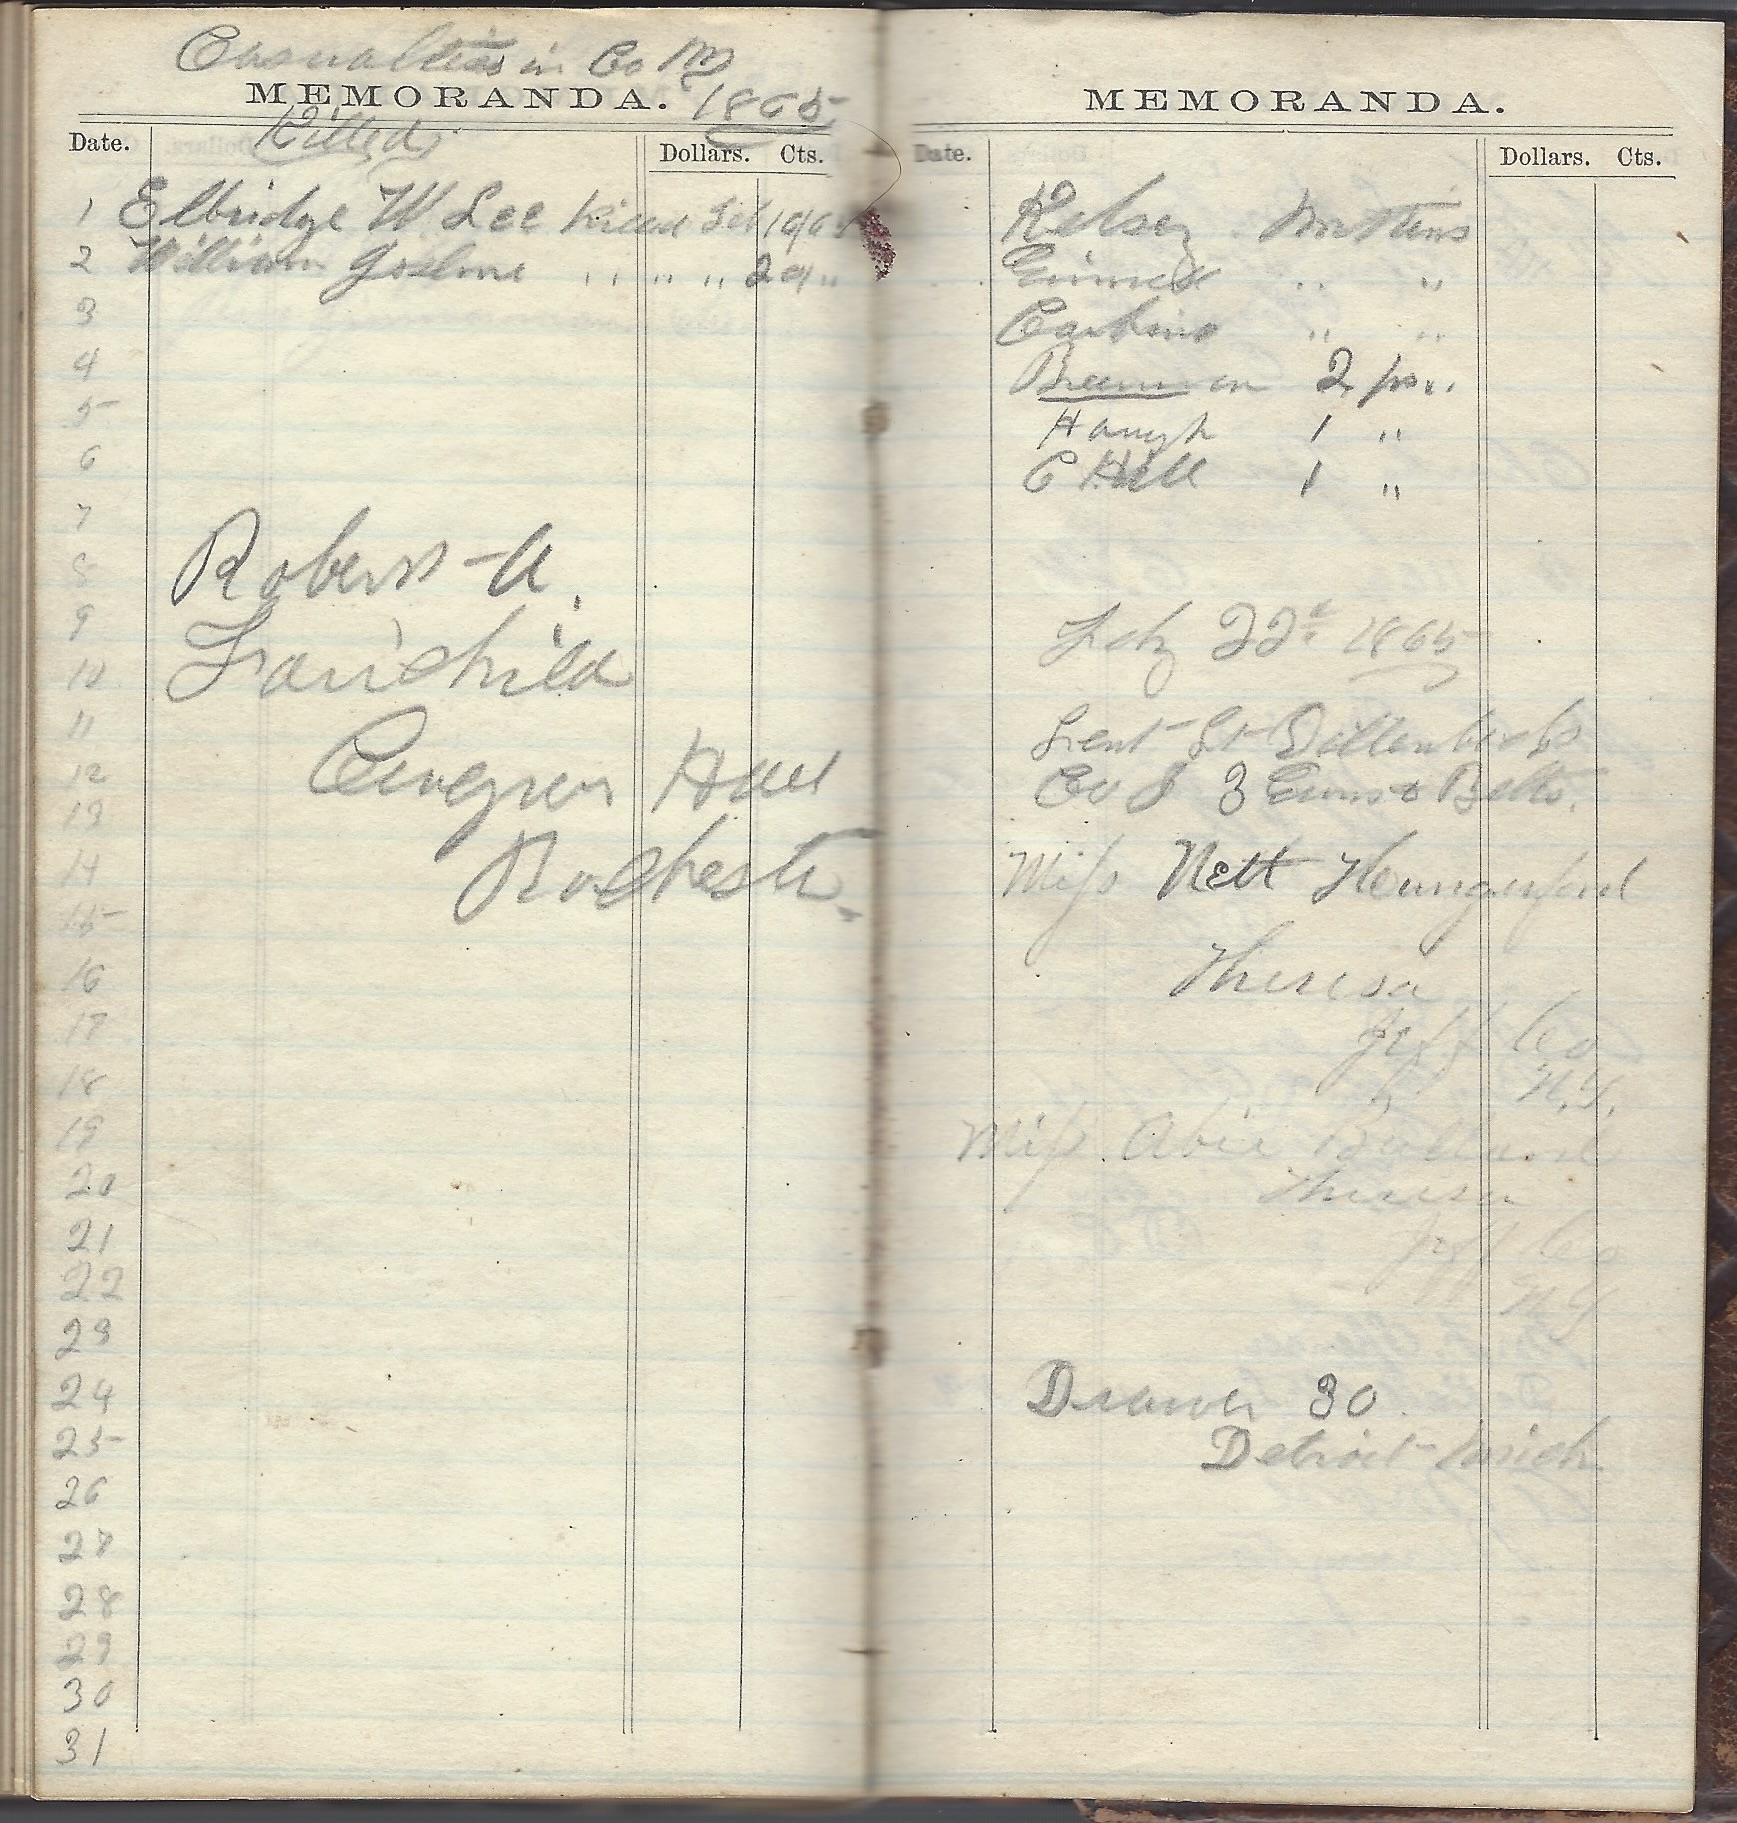 Casualties in Co M
MEMORANDA. 1865
Killed
Date. Dollars. Cts.
1 Elbridge W. Lee Killed Feb 19/65
2 William Goslin " " " 20 "
3
4
5
6
7
8 Roberts A.
9
10 Fairchild
11
12 Hall
13
14 Rochester
15
16
17
18
19
20
21
22
23
24
25
26
27
28
29
30
31
MEMORANDA.
Date. Dollars. Cts.
Kelsey Mittens
" "
" "
2 prs.
Haugh 1 "
C Hall 1 "
Feby 22d 1865
Lieut Dillenback
Co 3 Guns & Belts.
Miss Nett Hungerford
Theresa
Jeff Co
N.Y.
Miss Abie Ballard
Theresa
Jeff Co
N Y
Drawer 30
Detroit Mich